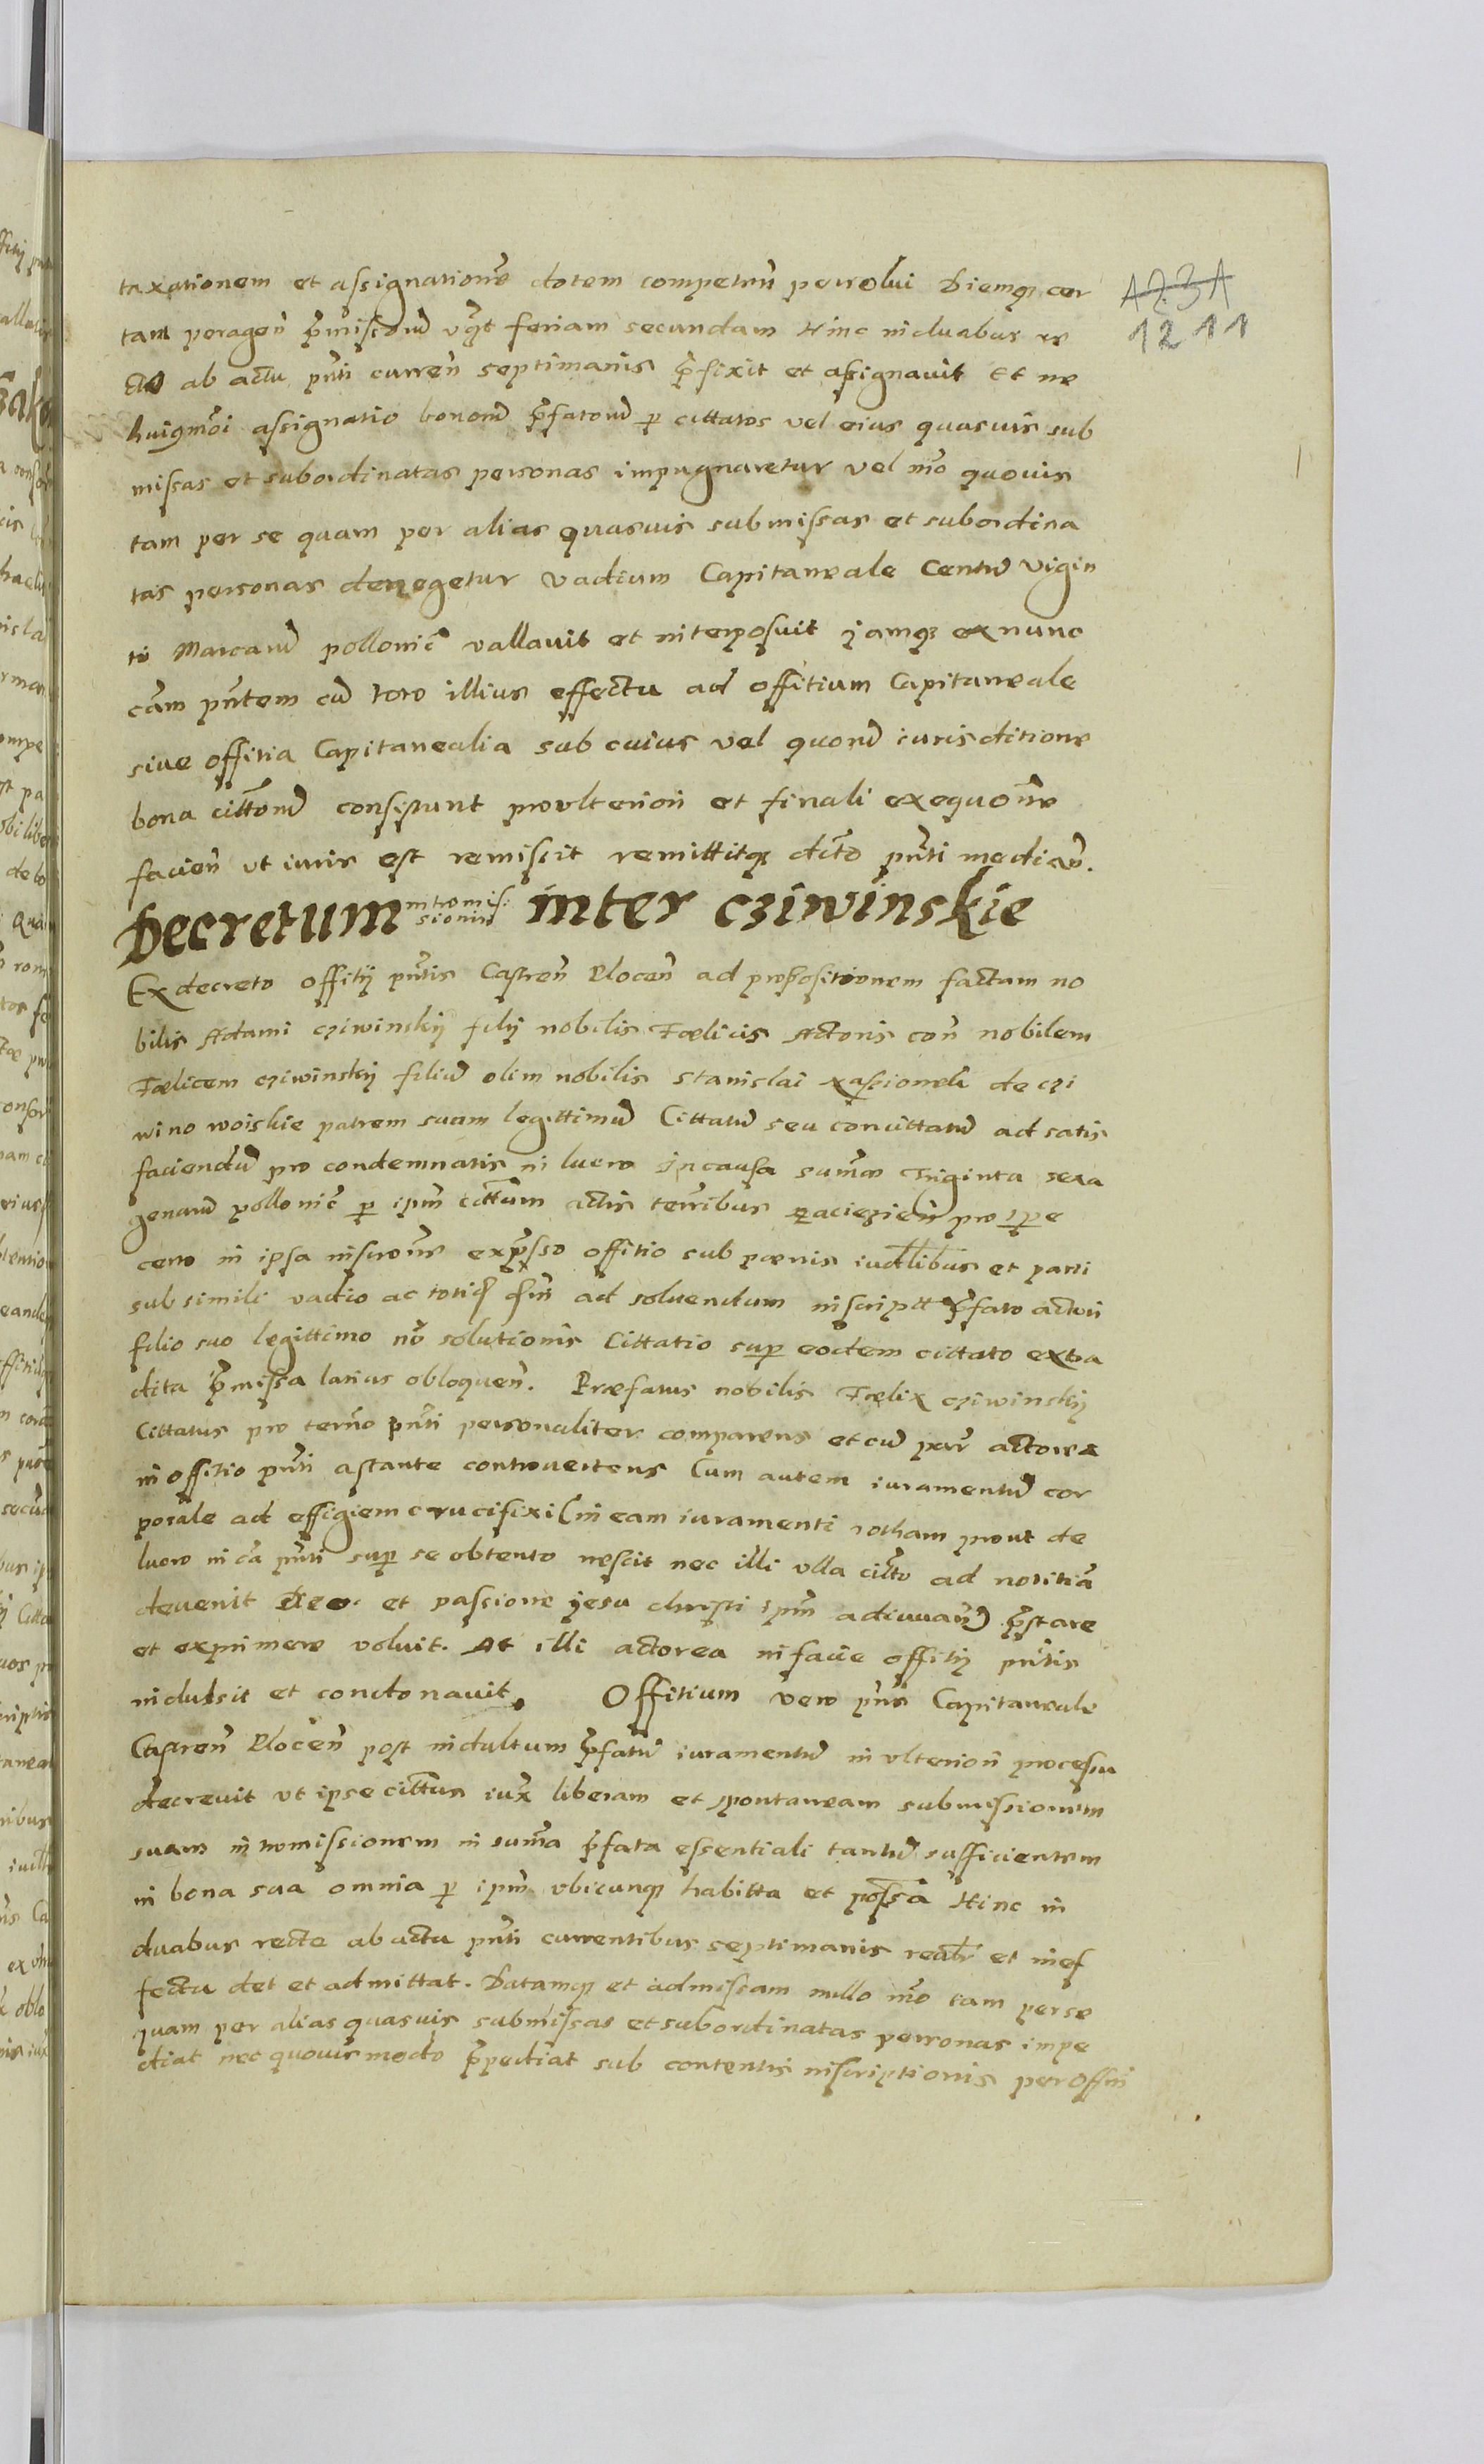 1231
1211
taxationem et assignatione͂ dotem competeñ persolui Diemq cer
tam perageñ p͂missoru͂ vq͂t feriam secundam Hinc in duabus re
cte ab actu pñti curreñ septimanis p͂fixit et assignauit Et ne
huiqmo͂i assignatio bonoru͂ p͂fatoru͂ p cittatos vel eius quasuis sub
missas et subordinatas personas impugnaretur vel mo͂ quouis
tam per se quam per alias quasuis submissas et subordina
tas personas denegetur vadium Capitaneale Centu͂ vigin
ti Marcaru͂ pollonic͂ vallauit et interposuit jamq ex nunc
ca͂m pñtem cu͂ toto illius effectu ad offitium Capitaneale
siue offitia Capitanealia sub cuius vel quoru͂ iurisditione
bona citt͂oru͂ consistunt pro vlteriori et finali exequo͂ne
facieñ vt iuris est remissit remittitq dc͂to pñti median͂.
Decretum intromis: sionis inter cziwinskie
Ex decreto offitij pñtis Castreñ Plocen͂ ad propositionem factam no
bilis Adami cziwinskij filij nobilis Fœlicis Actoris con͂ nobilem
Fœlicem cziwinskij filiu͂ olim nobilis Stanislai de czi
wino woiskie patrem suam legittimu͂ Cittatu͂ seu concittatu͂ ad satis
faciendu͂ pro condemnatis in lucro In causa sum͂æ triginta sexa
genaru͂ pollonic͂ p ipm͂ citt͂um actis terr͂ribus raciezieñ pro tp͂e
certo in ipsa inscro͂ne exp͂sso offitio sub pœnis iudl͂ibus et parti
sub simili vadio ac ad soluendum inscript p͂fato actori
filio suo legittimo no͂ solutionis Cittatio sup eodem cittato extra
dita p͂missa latius obloquen͂. Præfatus nobilis Fœlix cziwinskij
Cittatus pro term͂o pñti personaliter comparens et cu͂ par͂ actorea
in offitio pñti astante controuertens Cum autem iuramentu͂ cor
porale ad effigiem crucifixi (in eam iuramenti rotham prout de
lucro in ca͂ pñti sup se obtento nescit nec illi vlla citt͂o ad notitia͂
deuenit Deo. et passione jesu christi ipm͂ adiuuan͂) p͂stare
et exprimere voluit. At illi actorea in facie offitij pñtis
indulsit et condonauit. Offitium vero pñs Capitaneale
Castreñ Plocen͂ post indultum p͂fatu͂ iuramentu͂ in vlteriori processu
decreuit vt ipse citt͂us iux͂ liberam et spontaneam submissionem
suam intromissionem in sum͂a p͂fata essentiali tantu͂ sufficientem
in bona sua omnia p ipm͂ vbicunq habitta et poss͂a Hinc in
duabus recte ab actu pñti currentibus septimanis realr͂ et in ef
fectu det et admittat. Datamq et admissam nullo mo͂ tam per se
quam per alias quasuis submissas et subordinatas personas impe
diat nec quouis modo p͂pediat sub contentis inscriptionis per offici